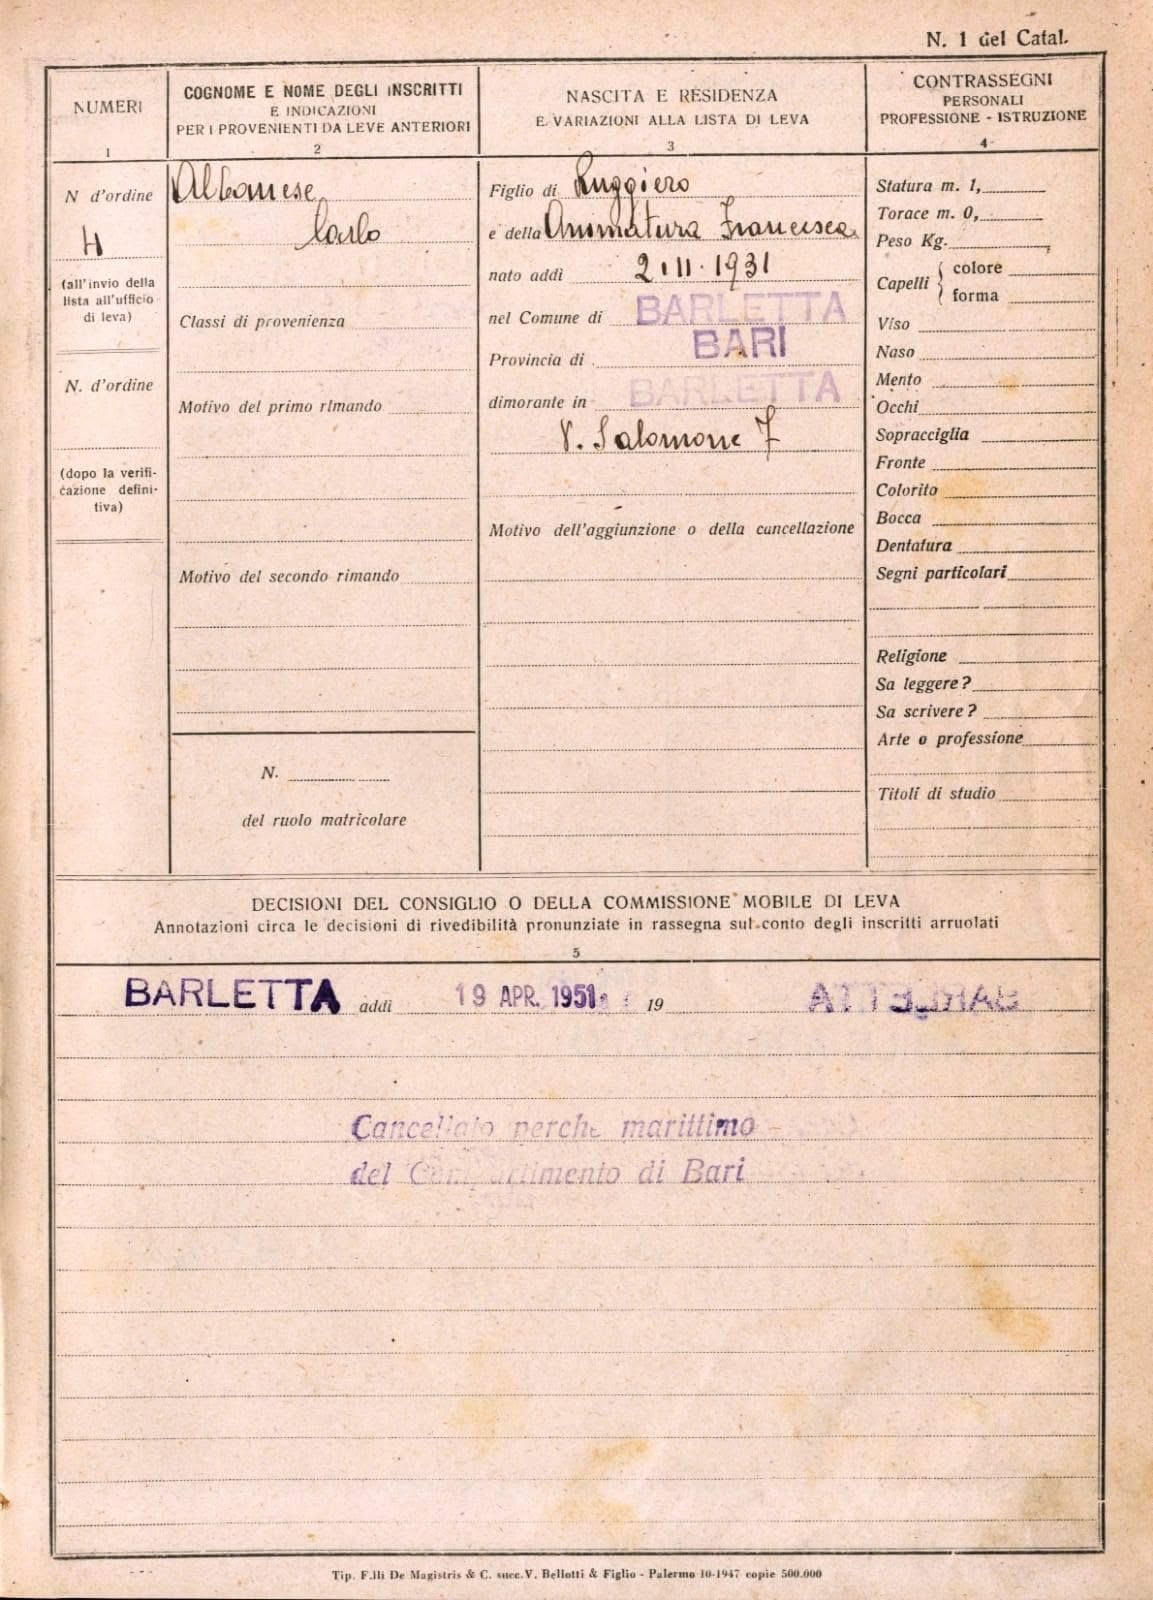 N. 1 del Catal.
NUMERI
1
COGNOME E NOME DEGLI INSCRITTI
E INDICAZIONI
PER I PROVENIENTI DA LEVE ANTERIORI
2
NASCITA E RESIDENZA
E VARIAZIONI ALLA LISTA DI LEVA
3
CONTRASSEGNI
PERSONALI
PROFESSIONE - ISTRUZIONE
4
N d'ordine
4
(all'invio della
lista all'ufficio
di leva)
N. d'ordine
(dopo la verifi-
cazione defini-
tiva)
Albanese
Carlo
Classi di provenienza
Motivo del primo rimando
Motivo del secondo rimando
N.
del ruolo matricolare
Figlio di Ruggiero
e della Ammatura Francesca
nato addì 2.11.1931
nel Comune di BARLETTA
Provincia di BARI
dimorante in BARLETTA
V. Salomone 7
Motivo dell'aggiunzione o della cancellazione
Statura m. 1,
Torace m. 0,
Peso Kg.
Capelli { colore
forma
Viso
Naso
Mento
Occhi
Sopracciglia
Fronte
Colorito
Bocca
Dentatura
Segni particolari
Religione
Sa leggere?
Sa scrivere?
Arte o professione
Titoli di studio
DECISIONI DEL CONSIGLIO O DELLA COMMISSIONE MOBILE DI LEVA
Annotazioni circa le decisioni di rivedibilità pronunziate in rassegna sul conto degli inscritti arruolati
5
BARLETTA addì 19 APR. 1951 19 BARLETTA
Cancellato perchè marittimo
del Compartimento di Bari
Tip. F.lli De Magistris & C. succ. V. Bellotti & Figlio - Palermo 10-1947 copie 500.000